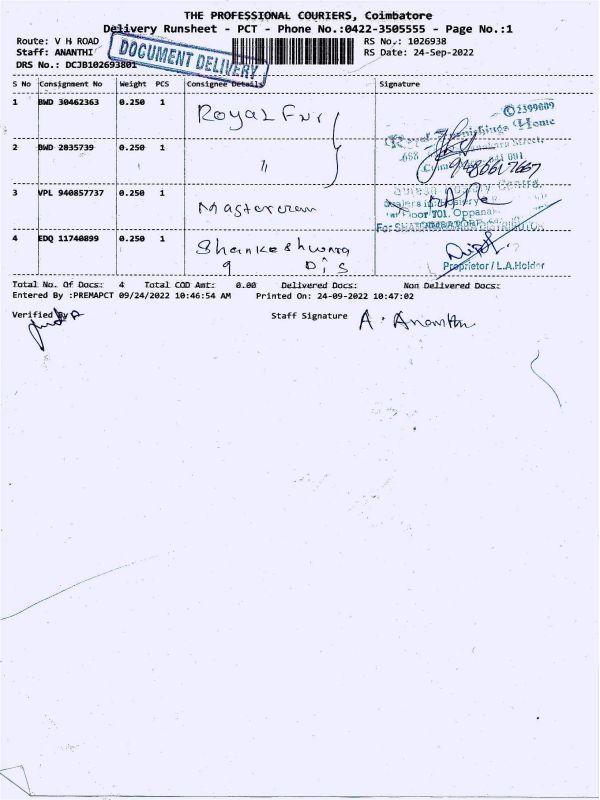 THE PROFESSIONAL COURIERS, Coimbatore
Delivery Runsheet - PCT - Phone No.:0422-3505555 - Page No.:1
Route: V H ROAD RS No.: 1026938
Staff: ANANTHI RS Date: 24-Sep-2022
DOCUMENT DELIVERY
DRS No.: DCJB102693801
S No Consignment No Weight PCS Consignee Details Signature
1 BWD 30462363 0.250 1 Royal Fur
2399609
Royal Furnishings Home
2 BWD 2835739 0.250 1 "
9486617667
3 VPL 940857737 0.250 1 Mastercram
4 EDQ 11740899 0.250 1 Shankeshwara
9 Dis
Proprietor / L.A.Holder
Total No. Of Docs: 4 Total COD Amt: 0.00 Delivered Docs: Non Delivered Docs:
Entered By :PREMAPCT 09/24/2022 10:46:54 AM Printed On: 24-09-2022 10:47:02
Verified By Staff Signature A. Ananthi